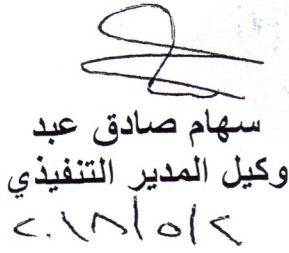 سهام صادق عبد
وكيل المدير التنفيذي
٢٠١٨/٥/٢